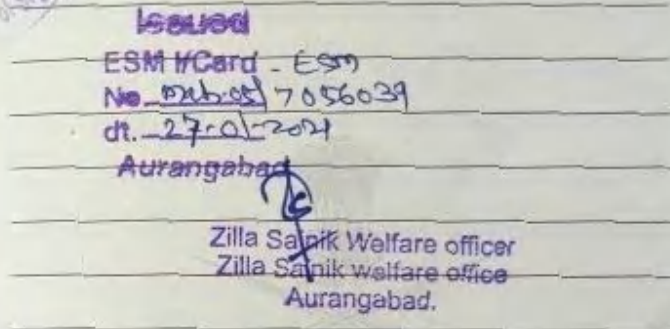 Issued
ESM I/Card - ESM
No 7056039
dt. 27-01-2021
Aurangabad
Zilla Sainik Welfare officer
Zilla Sainik welfare office
Aurangabad.